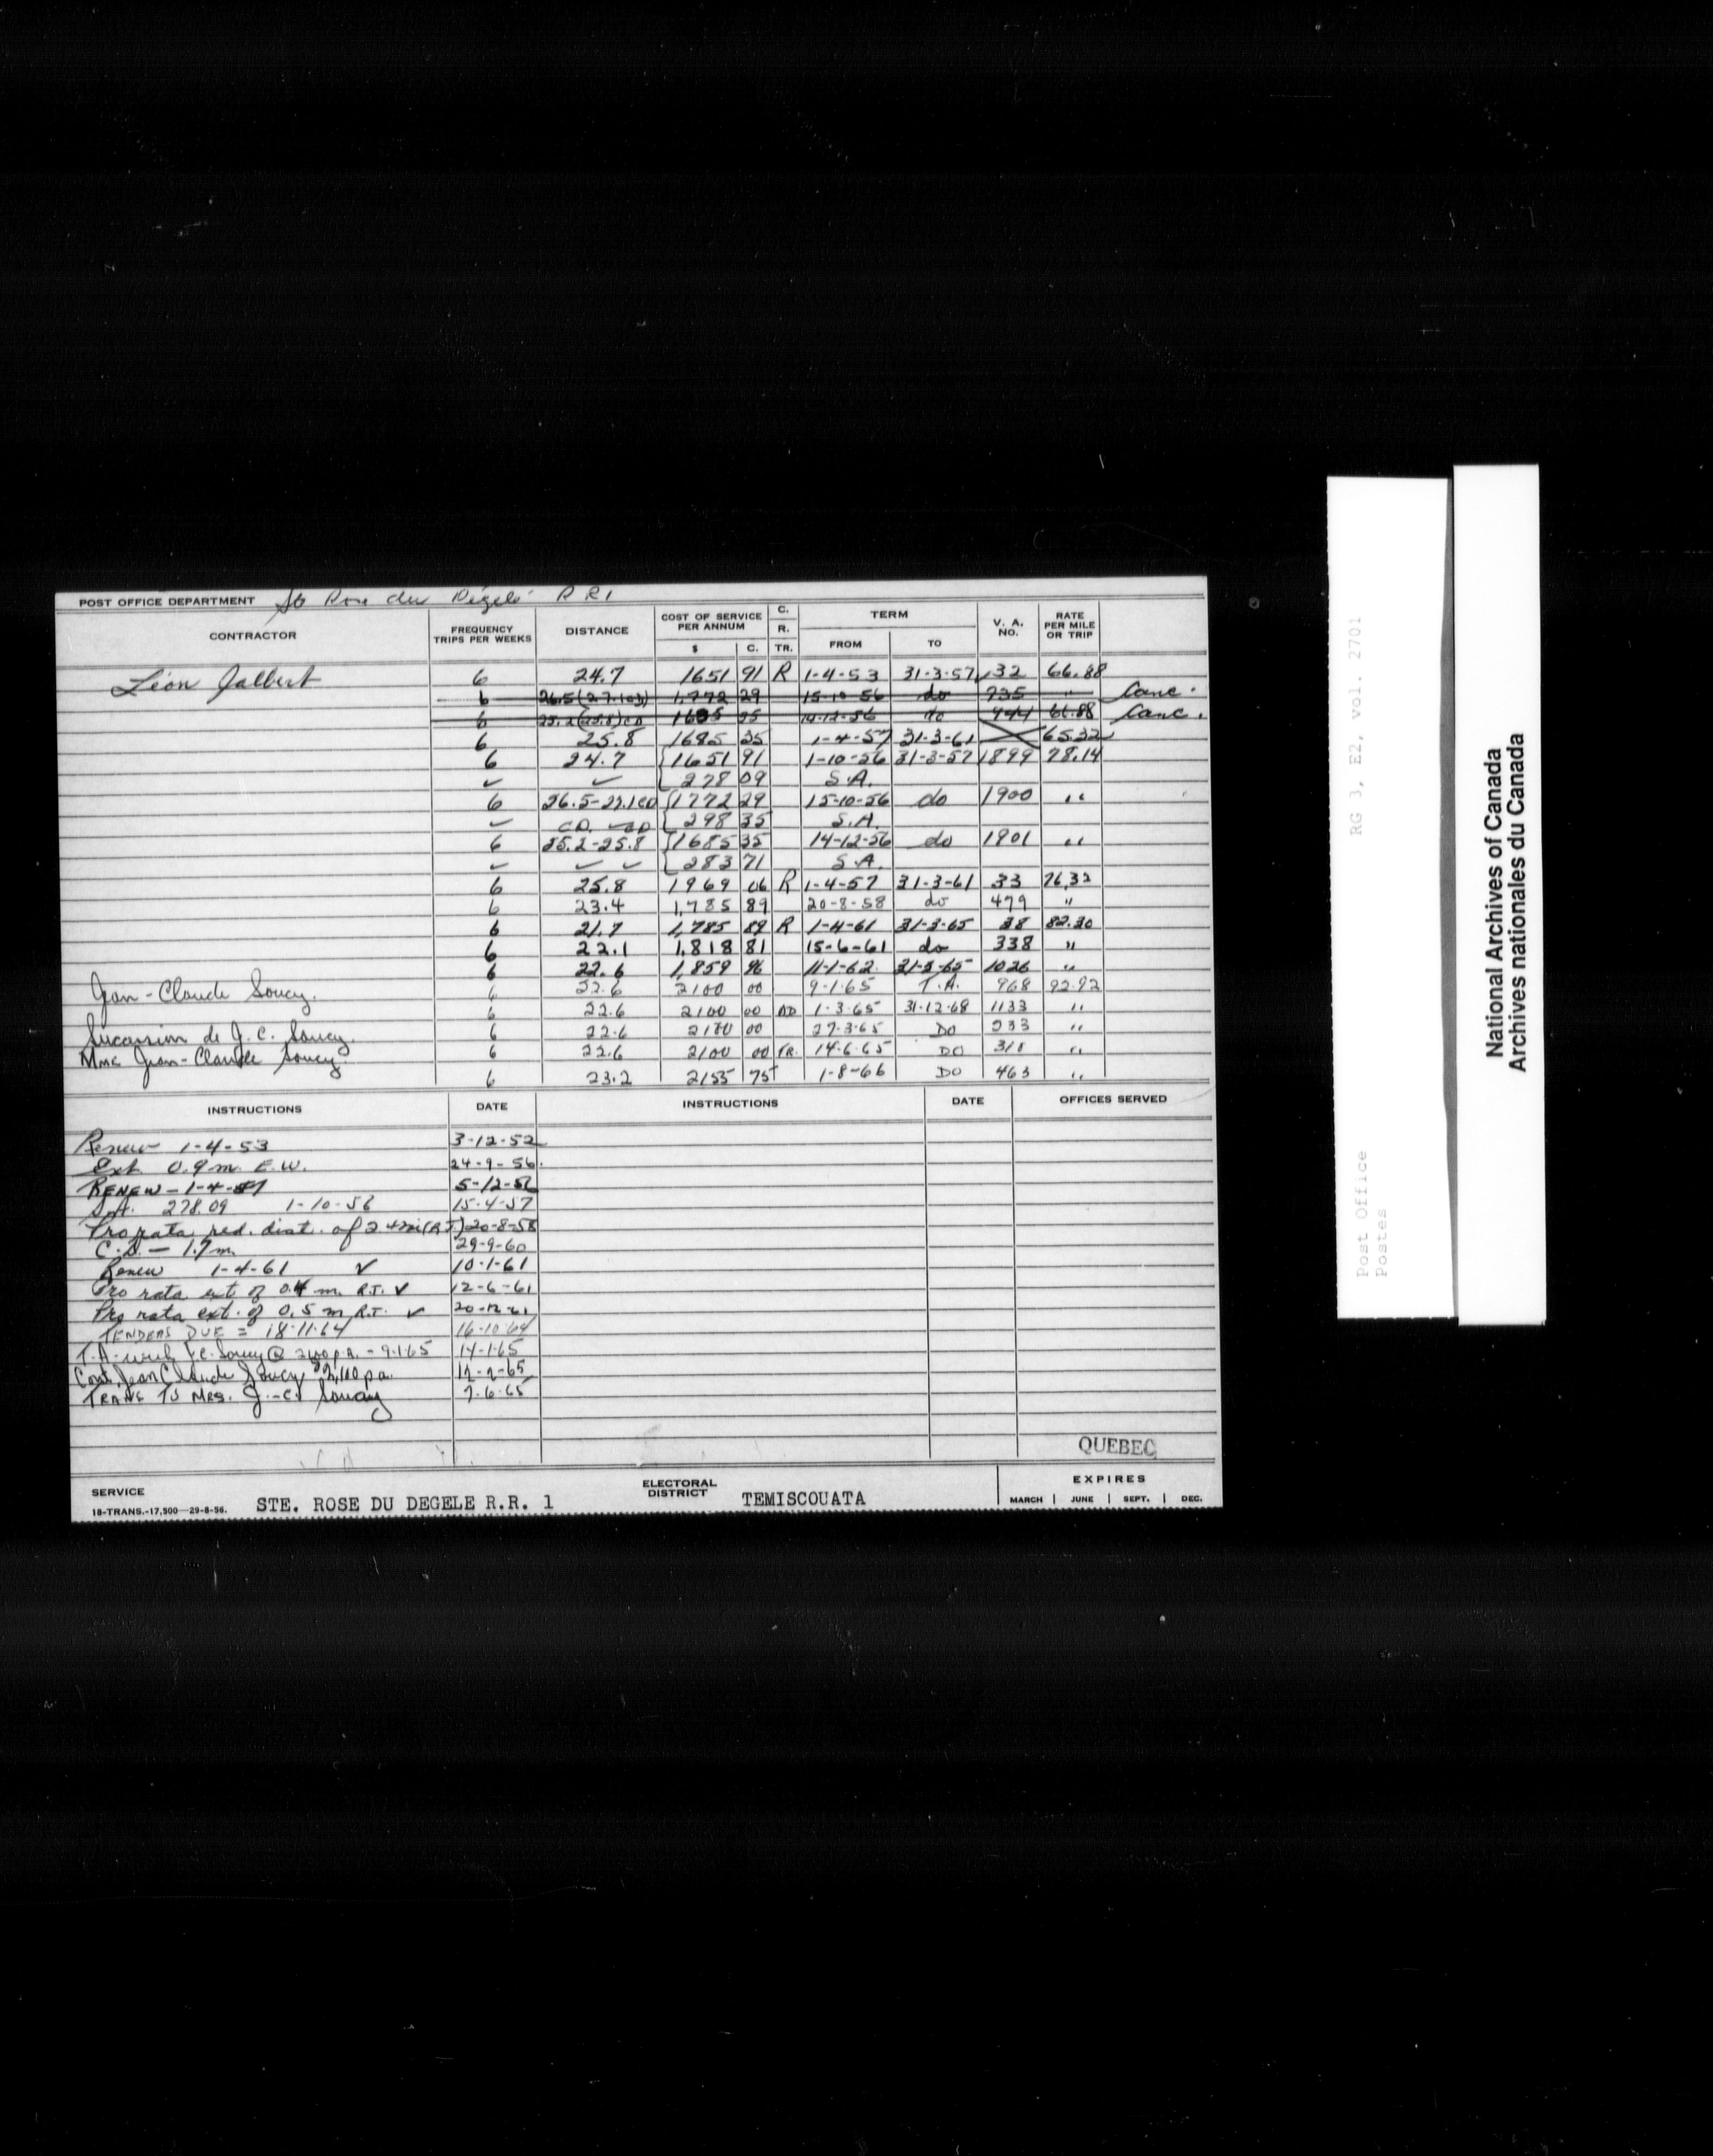 POST OFFICE DEPARTMENT Ste Rose du Dégelé R R 1
CONTRACTOR FREQUENCY TRIPS PER WEEKS DISTANCE COST OF SERVICE PER ANNUM $ C. C. R. TR. TERM FROM TO V. A. NO. RATE PER MILE OR TRIP
Léon Jalbert 6 24.7 1651 91 R 1-4-53 31-3-57 32 66.88
6 26.5 1,772 29 15-10-56 do 735 " Canc.
6 25.2 (25.8) CD 1685 35 14-12-56 do 944 66.88 Canc.
6 25.8 1685 35 1-4-57 31-3-61 65.32
6 24.7 1651 91 1-10-56 31-3-57 1899 78.14
✓ ✓ 278 09 S.A.
6 26.5-27.1 CD 1772 29 15-10-56 do 1900 "
✓ CD. 298 35 S.A.
6 25.2-25.8 1685 35 14-12-56 do 1901 "
✓ ✓ ✓ 283 71 S.A.
6 25.8 1969 06 R 1-4-57 31-3-61 33 76.32
6 23.4 1,785 89 20-8-58 do 479 "
6 21.7 1,785 89 R 1-4-61 31-3-65 38 82.30
6 22.1 1,818 81 15-6-61 do 338 "
6 22.6 1,859 96 11-1-62 31-3-65 1026 "
Jean-Claude Soucy. 6 22.6 2100 00 9-1-65 T.A. 968 92.92
6 22.6 2100 00 1-3-65 31-12-68 1133 "
Succession de J. C. Soucy. 6 22.6 2100 00 27-3-65 DO 233 "
Mme Jean-Claude Soucy 6 22.6 2100 00 TR. 14-6-65 DO 311 "
6 23.2 2155 75 1-8-66 DO 463 "
INSTRUCTIONS DATE INSTRUCTIONS DATE OFFICES SERVED
Renew 1-4-53 3-12-52
Ext. 0.9 m. E.W. 24-9-56.
RENEW - 1-4-57 5-12-56
S.A. 278.09 1-10-56 15-4-57
Pro rata red. dist. of 2.4 mi (R.T.) 20-8-58
C.D. - 1.7 m. 29-9-60
Renew 1-4-61 ✓ 10-1-61
Pro rata ext of 0.4 m. R.T. ✓ 12-6-61
Pro rata ext. of 0.5 m R.T. ✓ 20-12-61
TENDERS DUE = 18-11-64 16-10-64
T.A. with J.C. Soucy @ 2100 p.a. - 9-1-65 14-1-65
Cont. Jean Claude Soucy $2,100 p a. 12-2-65
TRANS TO MRS. J.-C. Soucy 7-6-65
QUEBEC
SERVICE STE. ROSE DU DEGELE R.R. 1 ELECTORAL DISTRICT TEMISCOUATA EXPIRES
18-TRANS.-17,500—29-8-56. MARCH | JUNE | SEPT. | DEC.
RG 3, E2, vol. 2701
Post Office
Postes
National Archives of Canada
Archives nationales du Canada